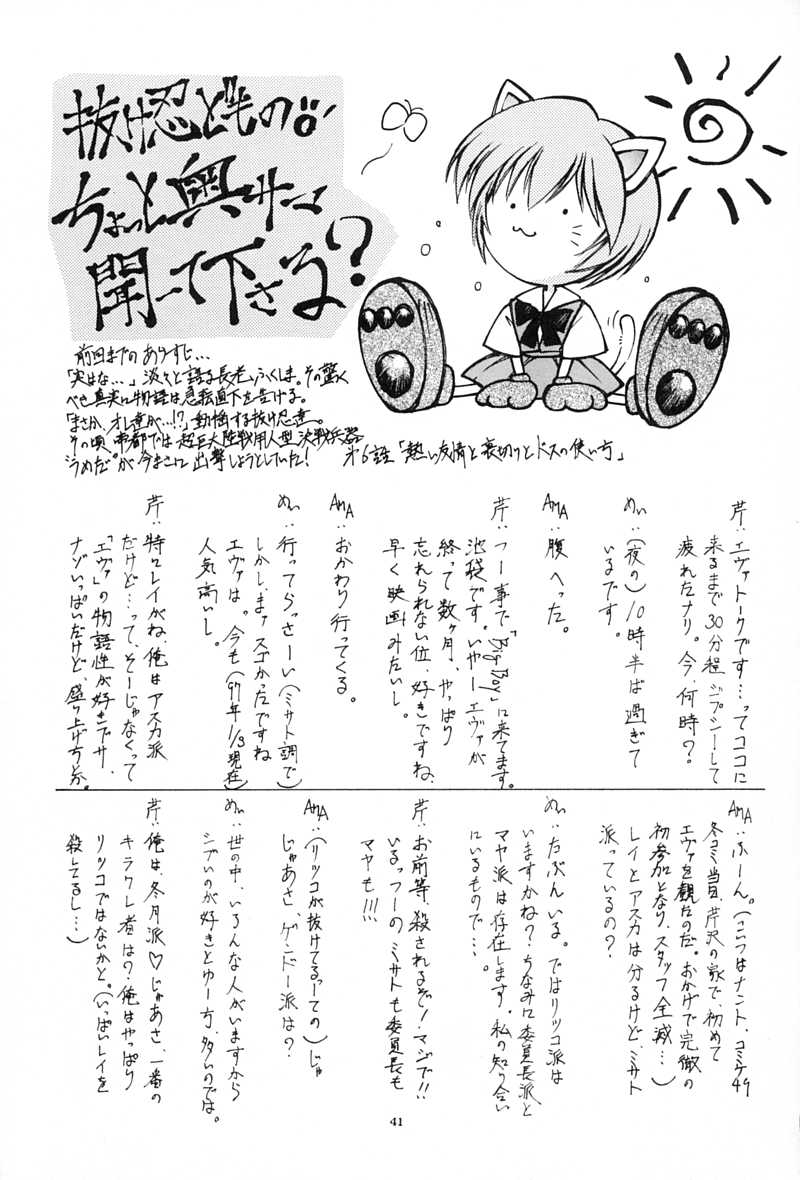 抜け忍どもの
ちょっと奥サーマ
聞いて下さる?
前回までのあらすじ…
「実はな…」淡々と語る長老、ふくしま。その驚く
べき真実に物語は急転直下を告げる。
「まさか、オレ達が…!?」動揺する抜け忍達。
その頃、帝都では超巨大陸戦用人型決戦兵器
"うめだ"が今まさに出撃しようとしていた!
第6話「熱い友情と裏切りとドスの使い方」
芹:エヴァトークです…ってココに
来るまで30分程ジプシーして
疲れたナリ。今、何時?
めぃ:(夜の)10時半ば過ぎて
いるです。
AMA:腹へった。
芹:つー事で「Big Boy」に来てます。
池袋です。いやーエヴァが
終って数ヶ月、やっぱり
忘れられない位、好きですね、
早く映画みたいし。
AMA:おかわり行ってくる。
めぃ:行ってらっさーい(ミサト調で)
しかし、まァスゴかったですね
エヴァは。今も(97年1/3現在)
人気高いし。
芹:特にレイがね、俺はアスカ派
だけど…って、そーじゃなくって
「エヴァ」の物語性が好きでサ、
ナゾいっぱいだけど、盛り上げ方とか。
AMA:ふーん。(こいつはナント、コミケ49
冬コミ当日、芹沢の家で、初めて
エヴァを観たのだ。おかげで完徹の
初参加となり、スタッフ全滅…)
レイとアスカは分るけど、ミサト
派っているの?
めぃ:たぶんいる。ではリツコ派は
いますかね?ちなみに委員長派と
マヤ派は存在します。私の知り合い
にいるもので…。
芹:お前等、殺されるぞ!マジで!!
いるっつーの ミサトも委員長も
マヤも!!!
AMA:(リツコが抜けてるってーの)じ
じゃあさ、ゲンドー派は?
めぃ:世の中、いろんな人がいますから
シブいのが好きとゆー方、多いのでは。
芹:俺は、冬月派♡じゃあさ、一番の
キラクレ者は?俺はやっぱり
リツコではないかと。(いっぱいレイを
殺してるし…)
41